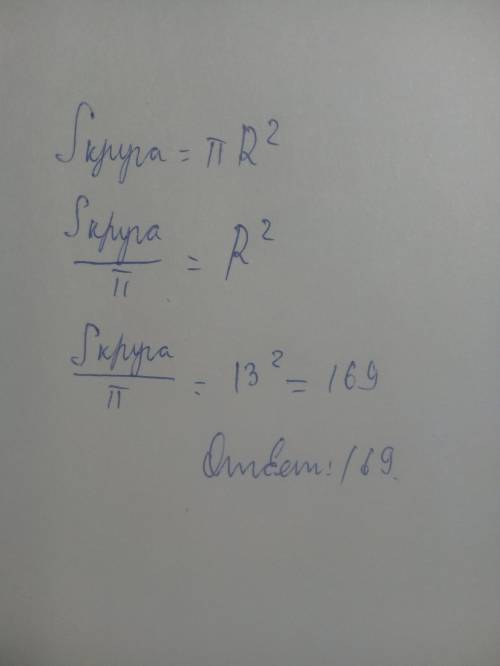 Sкруга = π R²
Sкруга / π = R²
Sкруга / π = 13² = 169
Ответ: 169.